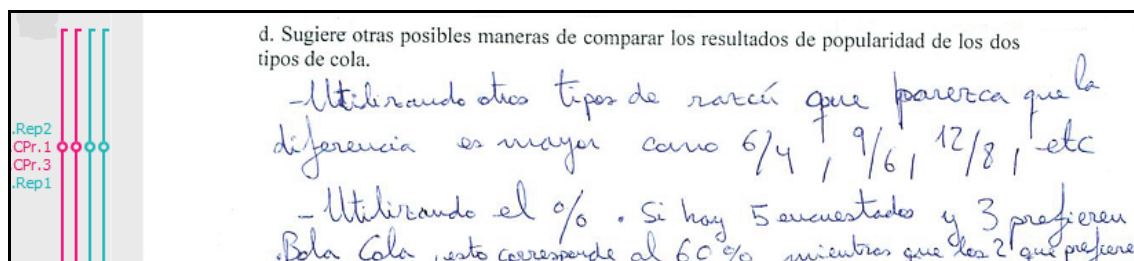 d. Sugiere otras posibles maneras de comparar los resultados de popularidad de los dos
tipos de cola.
-Utilizando otros tipos de razón que parezca que la
diferencia es mayor como 6/4, 9/6, 12/8, etc
.Rep2
CPr.1
CPr.3
.Rep1
-Utilizando el %. Si hay 5 encuestados y 3 prefieren
Bola Cola, esto corresponde al 60% mientras que los 2 que prefiere